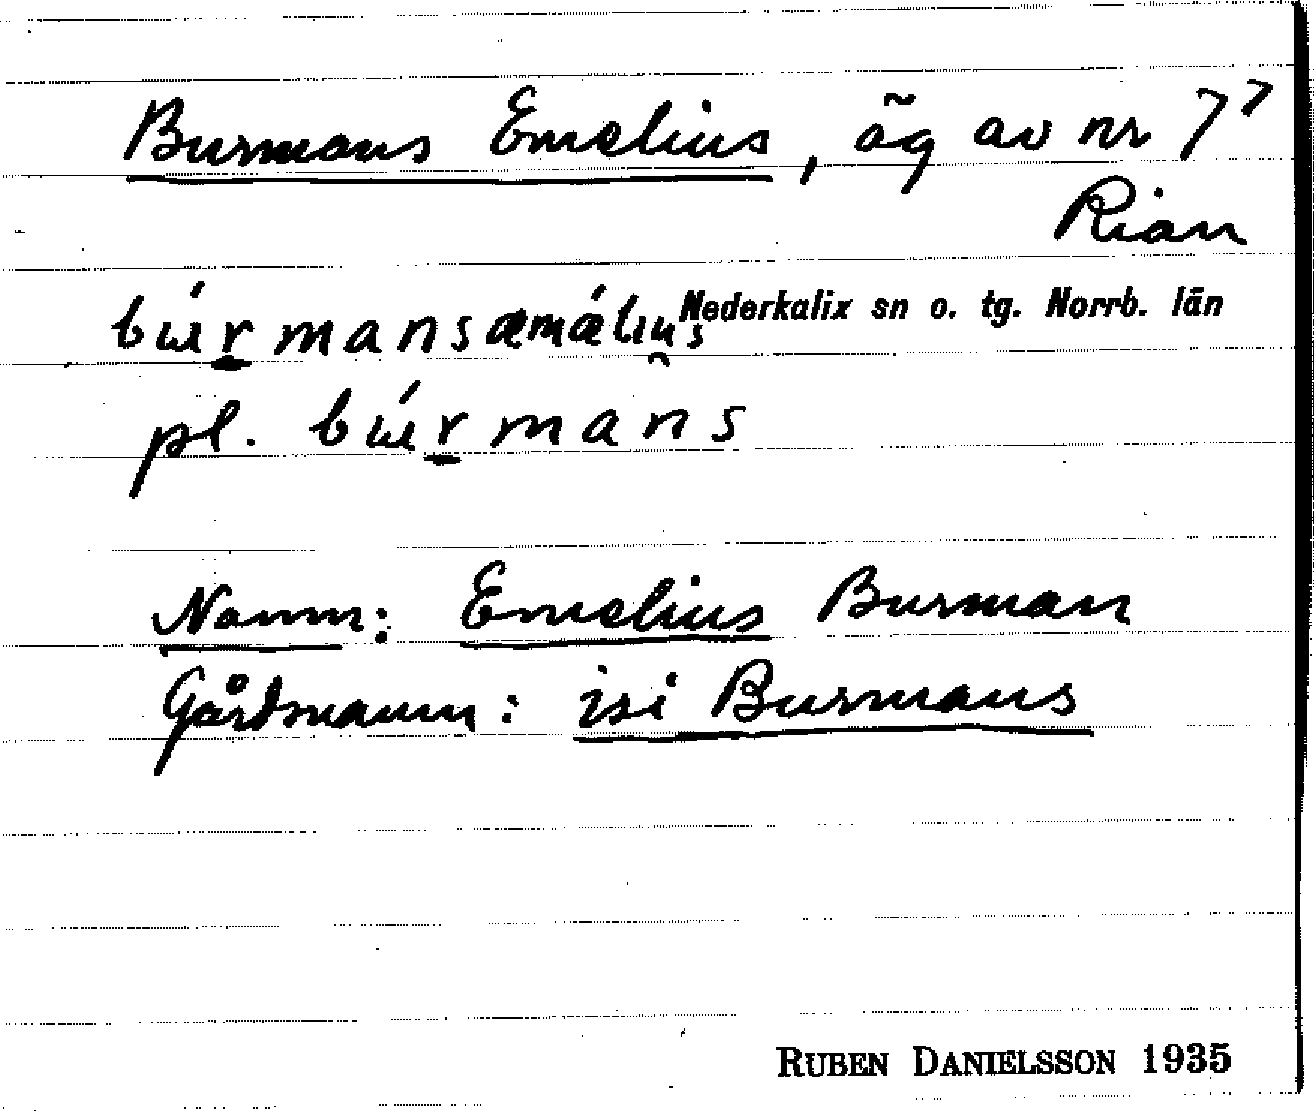 Burmans Emelius, äg av nr 7⁷
Rian
Nederkalix sn o. tg. Norrb. län
búrmansæmǽlius
pl. búrmans
Namn: Emelius Burman
Gårdsnamn: isi Burmans
RUBEN DANIELSSON 1935